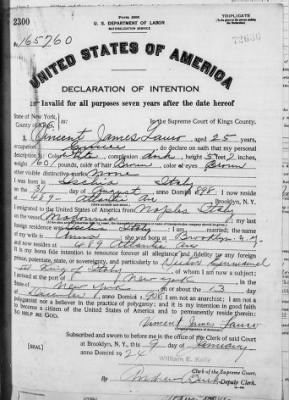 Form 2202
TRIPLICATE
2300
U. S. DEPARTMENT OF LABOR
NATURALIZATION SERVICE
No. 165760
UNITED STATES OF AMERICA
DECLARATION OF INTENTION
Invalid for all purposes seven years after the date hereof
State of New York,
County of Kings,
In the Supreme Court of Kings County.
I, Vincent James Lauro aged 25 years,
occupation, do declare on oath that my personal
description is: Color White, complexion dark, height 5 feet 2 inches,
weight 160 pounds, color of hair Brown color of eyes Brown
other visible distinctive marks None
I was born in Ischia Italy
on the 31 day of August, anno Domini 1898. I now reside
at 489 Atlantic Ave Brooklyn, N.Y.
I emigrated to the United States of America from Naples Italy
on the vessel my last
foreign residence was Ischia Italy; I am married; the name
of my wife is; she was born at Brooklyn N.Y.
and now resides at 489 Atlantic Ave
It is my bona fide intention to renounce forever all allegiance and fidelity to any foreign
prince, potentate, state, or sovereignty, and particularly to Victor Emmanuel
III King of Italy, of whom I am now a subject;
I arrived at the port of New York, in the
State of New York on or about the 13 day
of December, anno Domini 1908; I am not an anarchist; I am not a
polygamist nor a believer in the practice of polygamy; and it is my intention in good faith
to become a citizen of the United States of America and to permanently reside therein:
SO HELP ME GOD.
Vincent James Lauro
Subscribed and sworn to before me in the office of the Clerk of said Court
[SEAL] at Brooklyn, N.Y., this 9 day of January
anno Domini 1924
William E. Kelly
Clerk of the Supreme Court.
By Deputy Clerk.